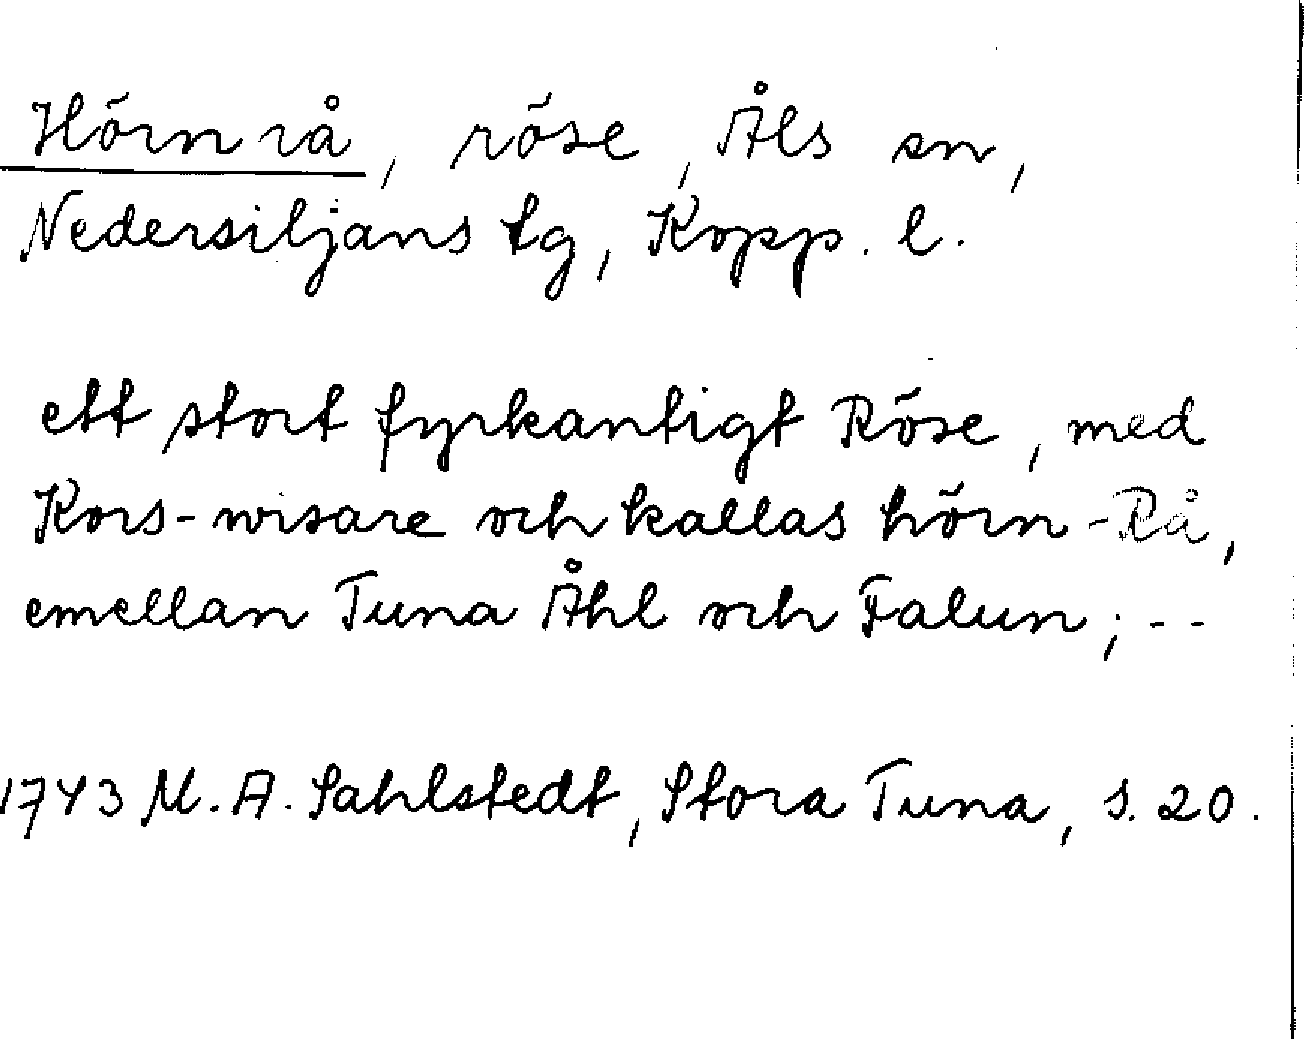 Hörnrå, röse, Åls sn,
Nedersiljans tg, Kopp. l.
ett stort fyrkantigt Röse, med
Kors-wisare och kallas hörn-Rå,
emellan Tuna Åhl och Falun; --
1743 M. A. Sahlstedt, Stora Tuna, s. 20.